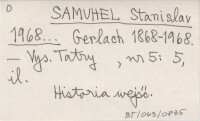 D
SAMUHEL Stanislav
1968... Gerlach 1868-1968.
— Vys. Tatry , nr 5: 5,
il.
Historia wejść.
BT/063/0835